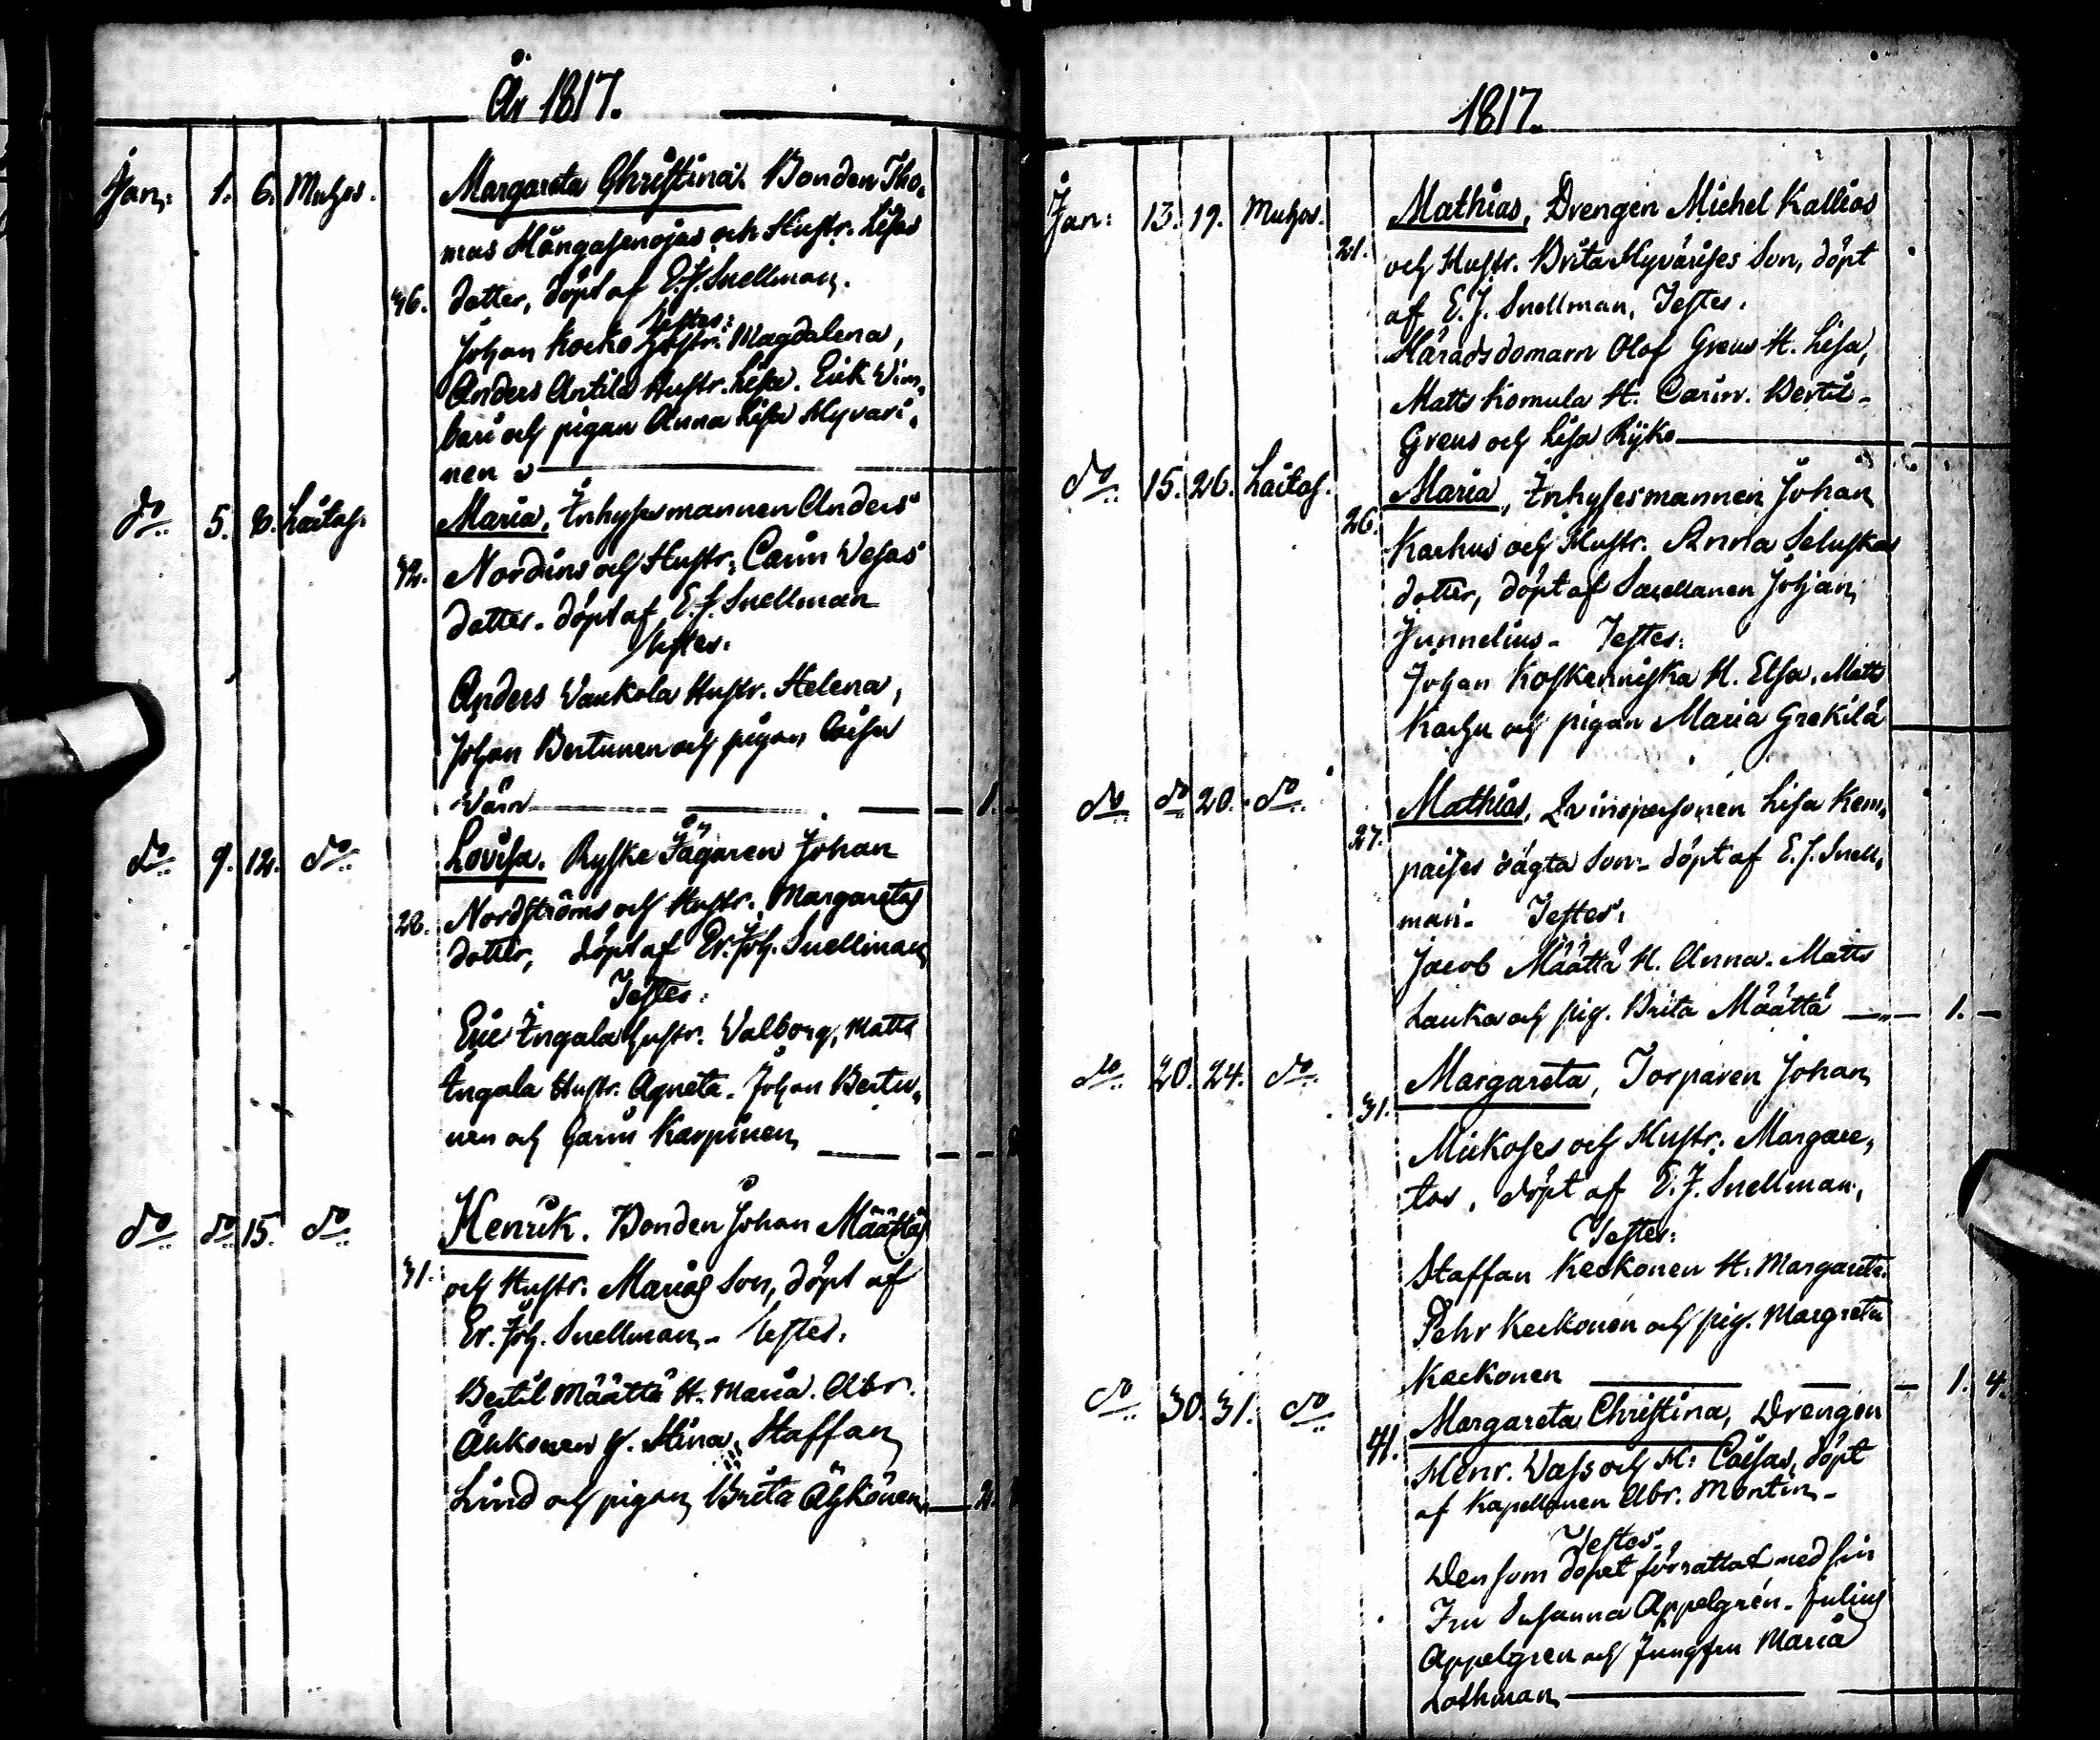 År 1817.
Jan: 1. 6. Muhos. Margareta Christina. Bonden Tho-
mas Mångasenojas och Hustr. Lisas
36. dotter, döpt af E.J. Snellman.
Testes:
Johan Kocko Hustr. Magdalena,
Anders Antila Hustr. Lisa. Erik Wim-
bari och pigan Anna Lisa Hyväri-
nen
do 5. 8. Laitas. Maria, Inhysesmannen Anders
32. Nordins och Hustr. Carin Wesas
dotter. döpt af E.J. Snellman
Testes.
Anders Waukola Hustr. Helena,
Johan Bertunen och pigan Caisa
Wän 1.
do 9. 12. do Lovisa. Ryske Jägaren Johan
28. Nordströms och Hustr. Margaretas
dotter, döpt af Er. Joh. Snellman
Testes:
Eric Ingala Hustr. Valborg, Matts
Ingala Hustr. Agneta. Johan Bertu-
nen och Carin Karpinen
do do 15. do Henrik. Bonden Johan Määttäs
31. och Hustr. Marias Son, döpt af
Er. Joh. Snellman. Testes.
Bertil Määttä H. Maria. Abr.
Ahkonen H. Stina, Staffan
Lind och pigan Brita Ahkonen 2.
1817.
Jan: 13. 19. Muhos. Mathias, Drengen Michel Kallios
21. och Hustr. Brita Hyvärises Son, döpt
af E.J. Snellman, Testes.
Häradsdomarn Olof Greus H. Lisa,
Matts Komula H. Carin. Bertil
Greus och Lisa Ryko
do 15. 26. Laitas. Maria, Inhysesmannen Johan
26. Karhus och Hustr. Anna Seluskas
dotter, döpt af Sacellanen Johan
Junnelius. Testes:
Johan Koskenniska H. Elsa. Matts
Karhu och pigan Maria Grekilä
do do 20. do Mathias, Qvinspersonen Lisa Kem-
27. paises oägta Son. döpt af E.J. Snell-
man. Testes:
Jacob Määttä H. Anna. Matts
Lauka och pig. Brita Määttä 1.
do 20. 24. do Margareta, Torparen Johan
31. Mickoses och Hustr. Margare-
tas, döpt af E.J. Snellman,
Testes:
Staffan Keckonen H. Margareta.
Pehr Keckonen och pig. Margreta
Keckonen 1. 4.
do 30. 31. do Margareta Christina, Drengen
41. Henr. Wass och H. Caisas, döpt
af Kapellanen Abr. Montin.
Testes.
Den som dopet förrättat med sin
Fru Susanna Appelgren. Julius
Appelgren och Jungfru Maria
Lothman